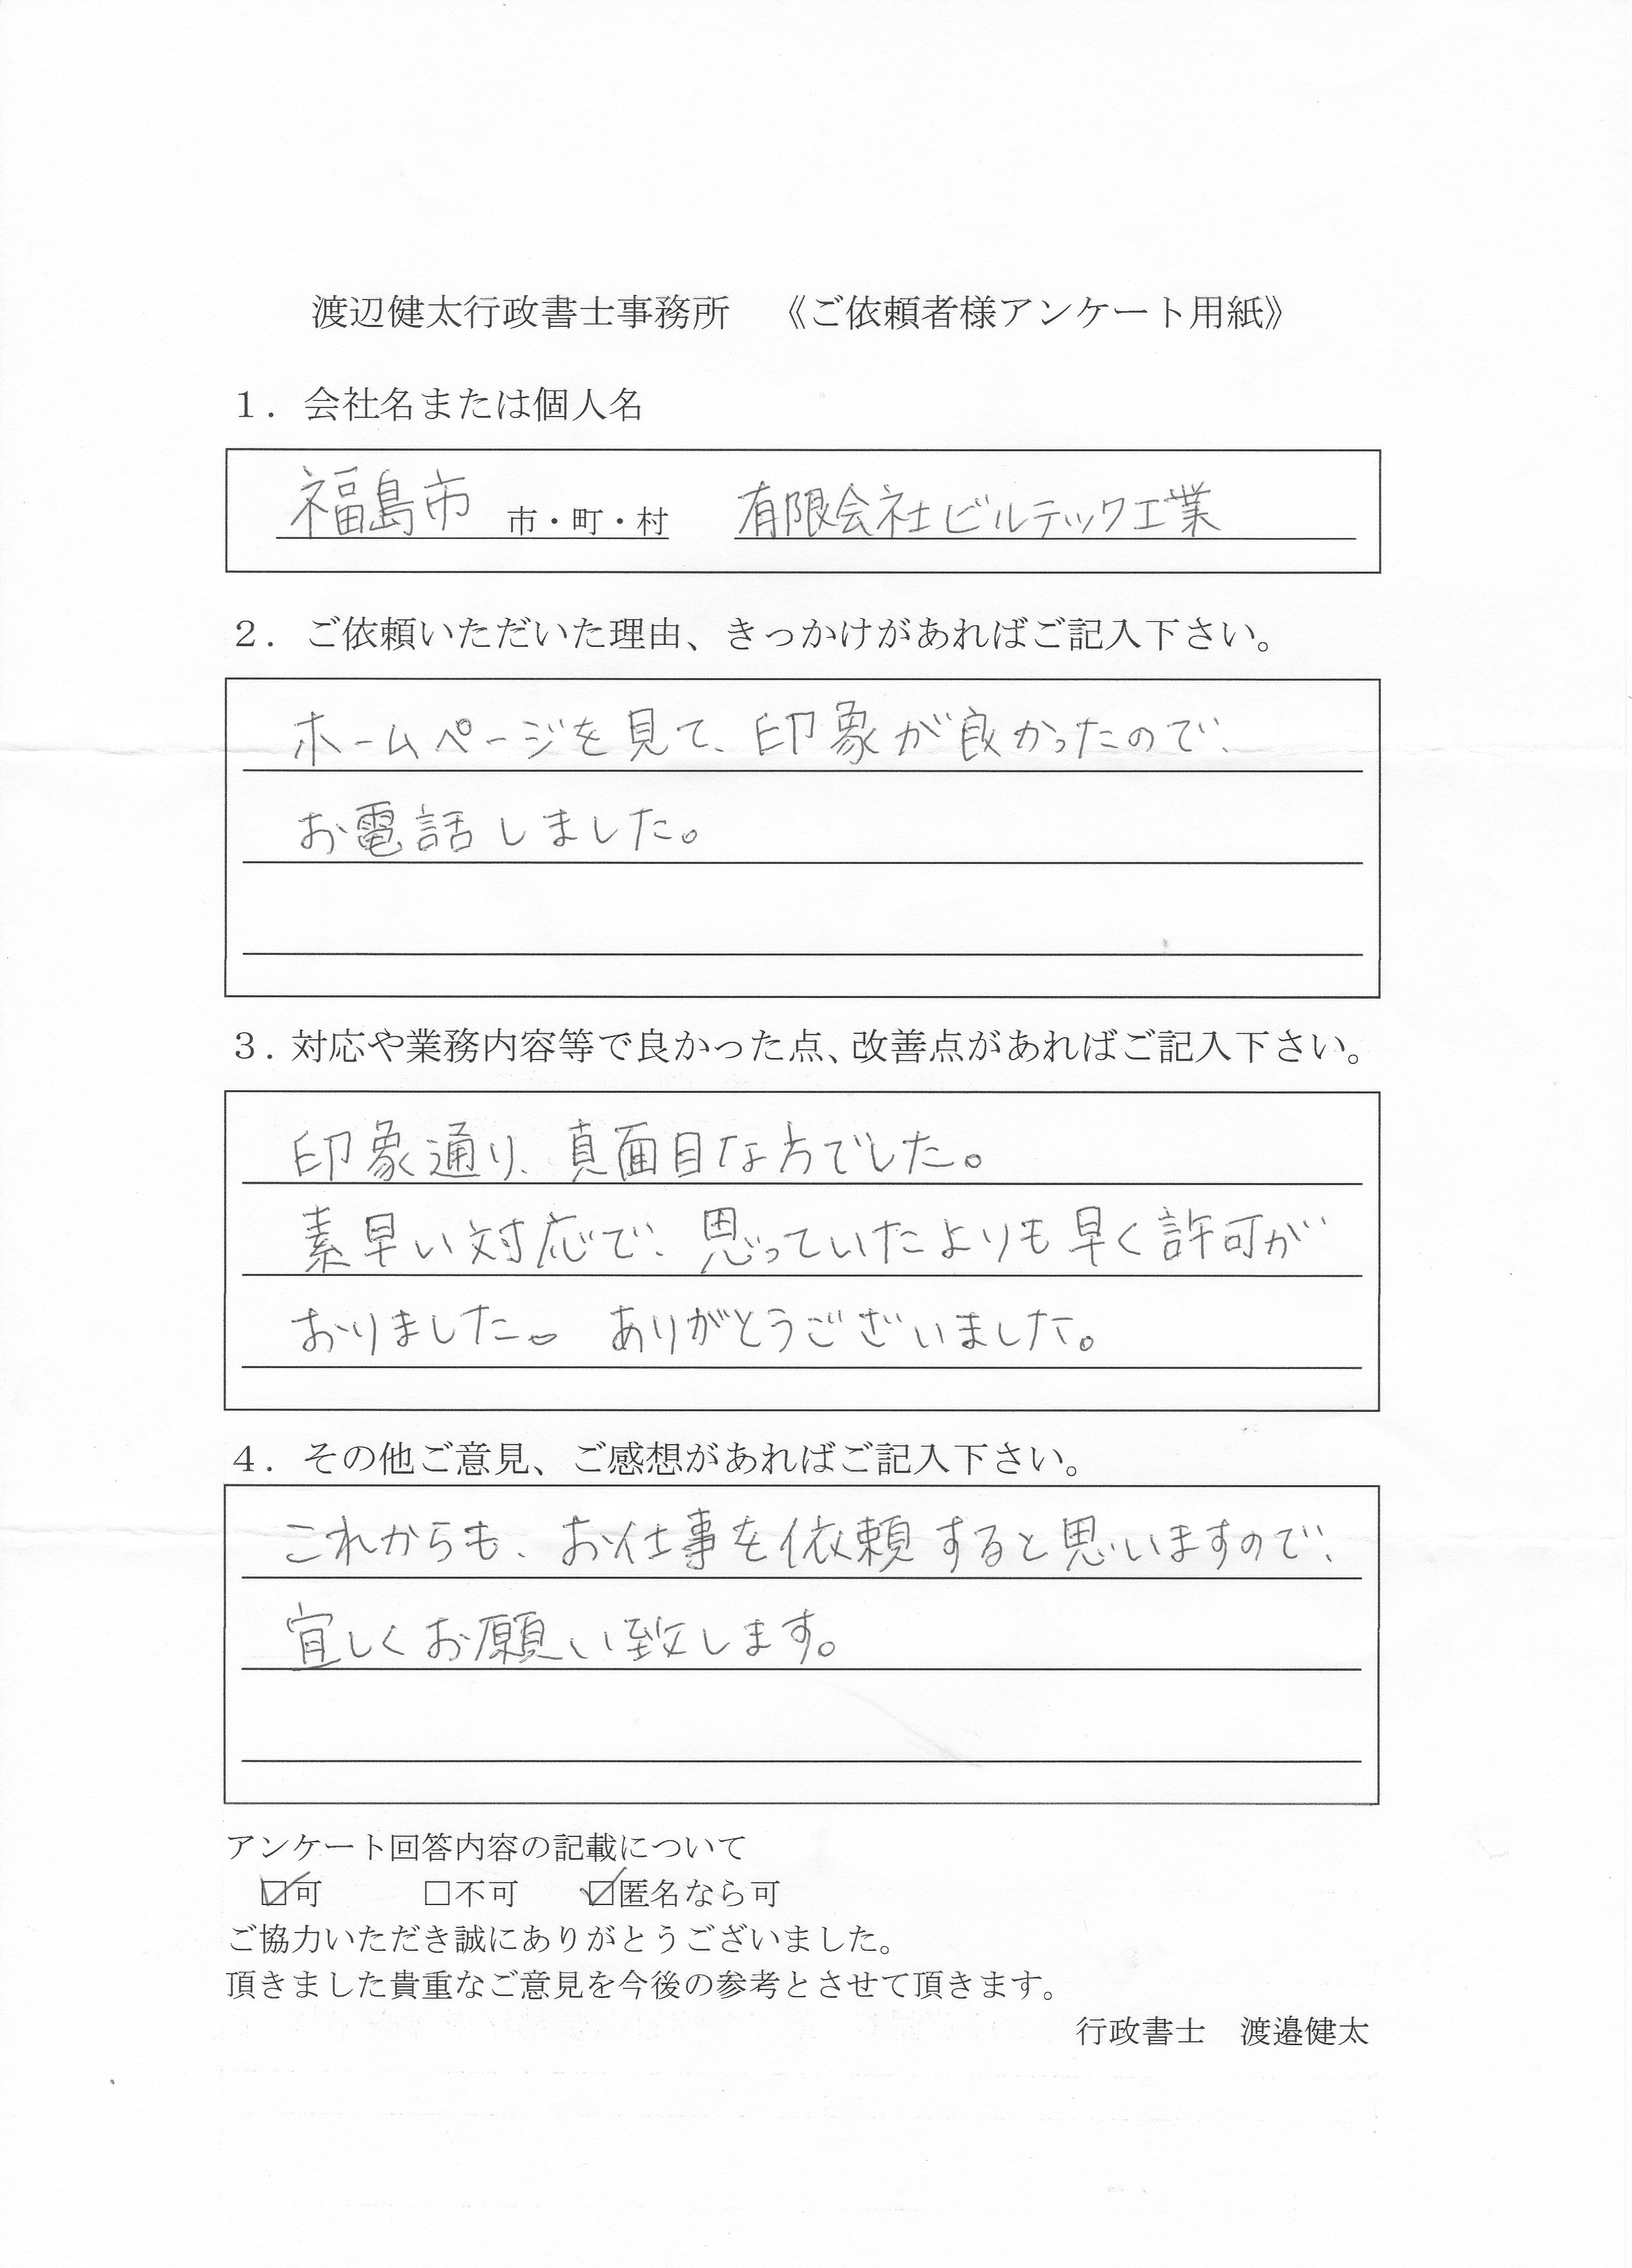 渡辺健太行政書士事務所　《ご依頼者様アンケート用紙》
１．会社名または個人名
福島市 市・町・村　有限会社ビルテック工業
２．ご依頼いただいた理由、きっかけがあればご記入下さい。
ホームページを見て、印象が良かったので、
お電話しました。
３．対応や業務内容等で良かった点、改善点があればご記入下さい。
印象通り、真面目な方でした。
素早い対応で、思っていたよりも早く許可が
おりました。　ありがとうございました。
４．その他ご意見、ご感想があればご記入下さい。
これからも、お仕事を依頼すると思いますので、
宜しくお願い致します。
アンケート回答内容の記載について
☑可　□不可　☑匿名なら可
ご協力いただき誠にありがとうございました。
頂きました貴重なご意見を今後の参考とさせて頂きます。
行政書士　渡邉健太